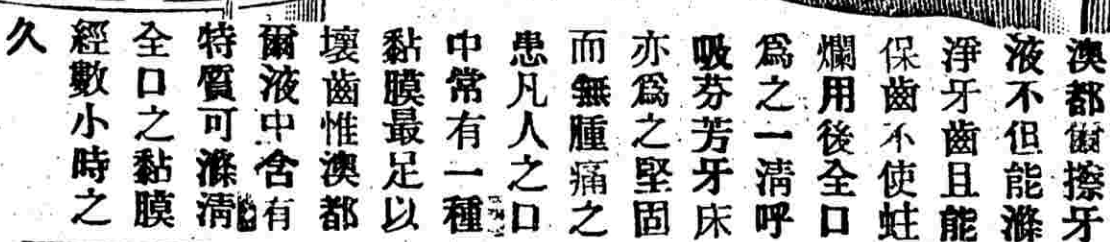 澳都爾擦牙
液不但能滌
淨牙齒且能
保齒不使蛀
爛用後全口
爲之一淸呼
吸芬芳牙床
亦爲之堅固
而無腫痛之
患凡人之口
中常有一種
黏膜最足以
壞齒惟澳都
爾液中含有
特質可滌淸
全口之黏膜
經數小時之
久